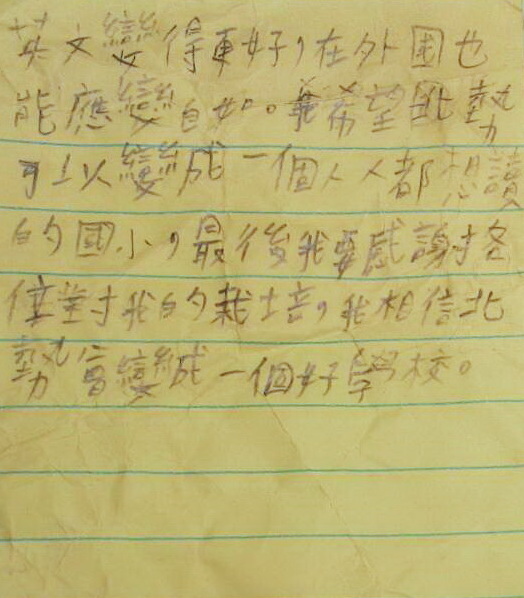 英文變得更好，在外國也
能應變自如。我希望北勢
可以變成一個人人都想讀
的國小，最後我要感謝
對我的栽培，我相信北
勢會變成一個好學校。